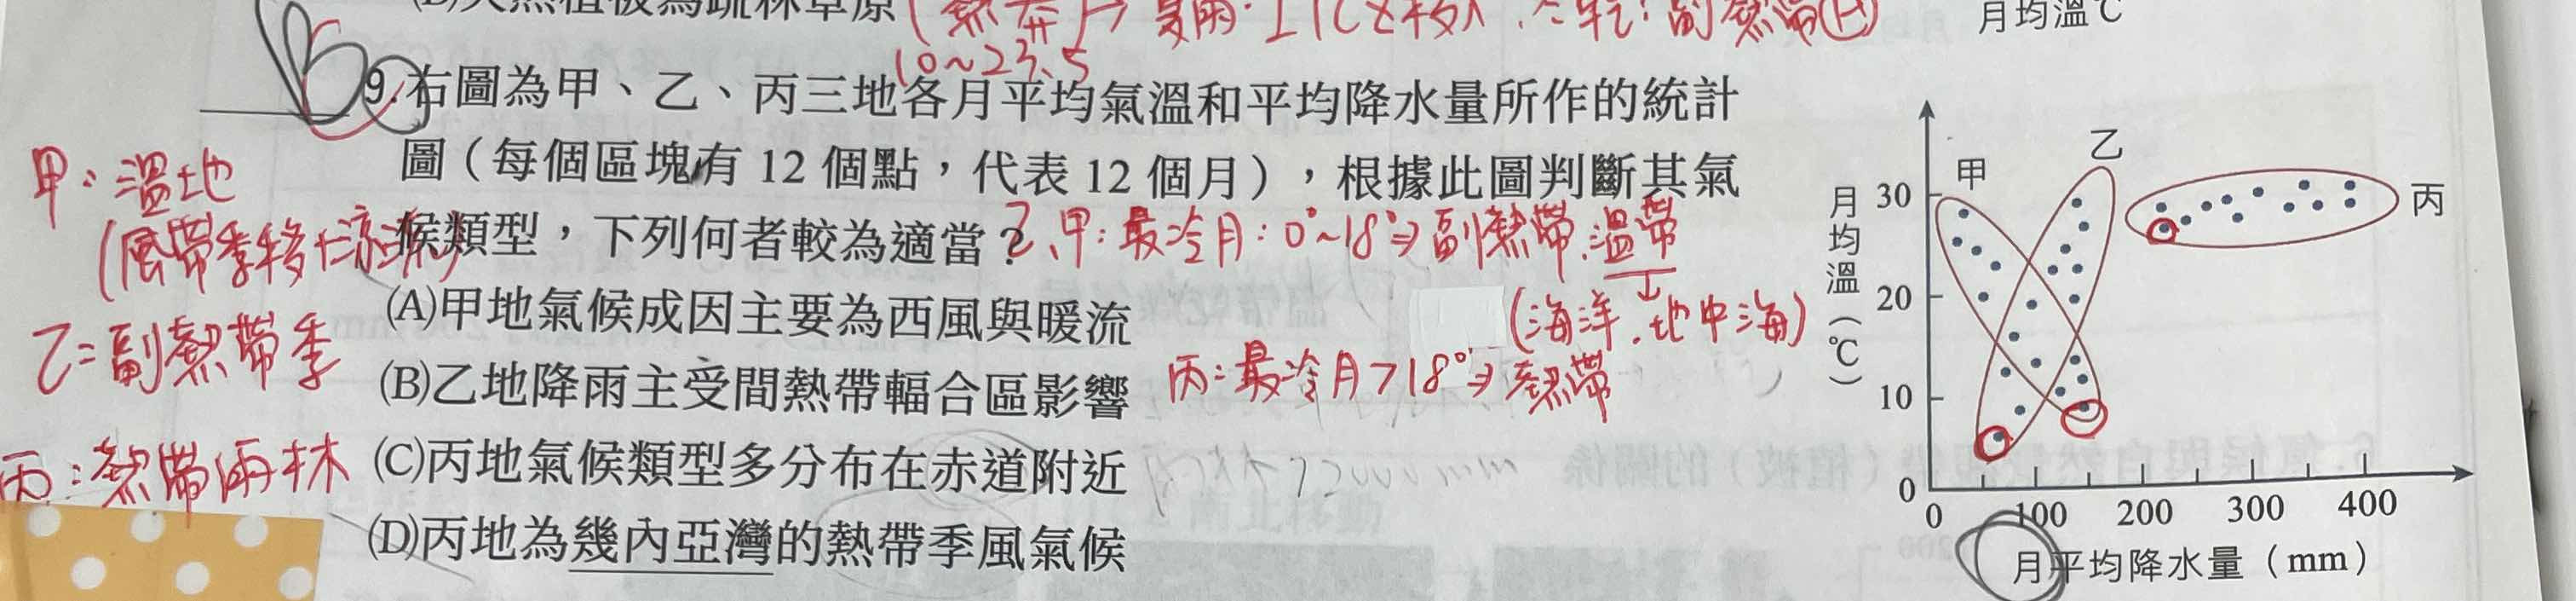 天然植被為疏林草原
10~23.5
月均溫℃
9.右圖為甲、乙、丙三地各月平均氣溫和平均降水量所作的統計
圖(每個區塊有 12 個點,代表 12 個月),根據此圖判斷其氣
候類型,下列何者較為適當?
乙、甲:最冷月:0°~18°⇒副熱帶、溫帶
(海洋、地中海)
(A)甲地氣候成因主要為西風與暖流
丙:最冷月>18°⇒熱帶
(B)乙地降雨主受間熱帶輻合區影響
(C)丙地氣候類型多分布在赤道附近
(D)丙地為幾內亞灣的熱帶季風氣候
甲:溫地
(風帶季移+涼流)
乙:副熱帶季
丙:熱帶雨林
甲
乙
丙
月均溫(℃)
30
20
10
0
0 100 200 300 400
月平均降水量(mm)